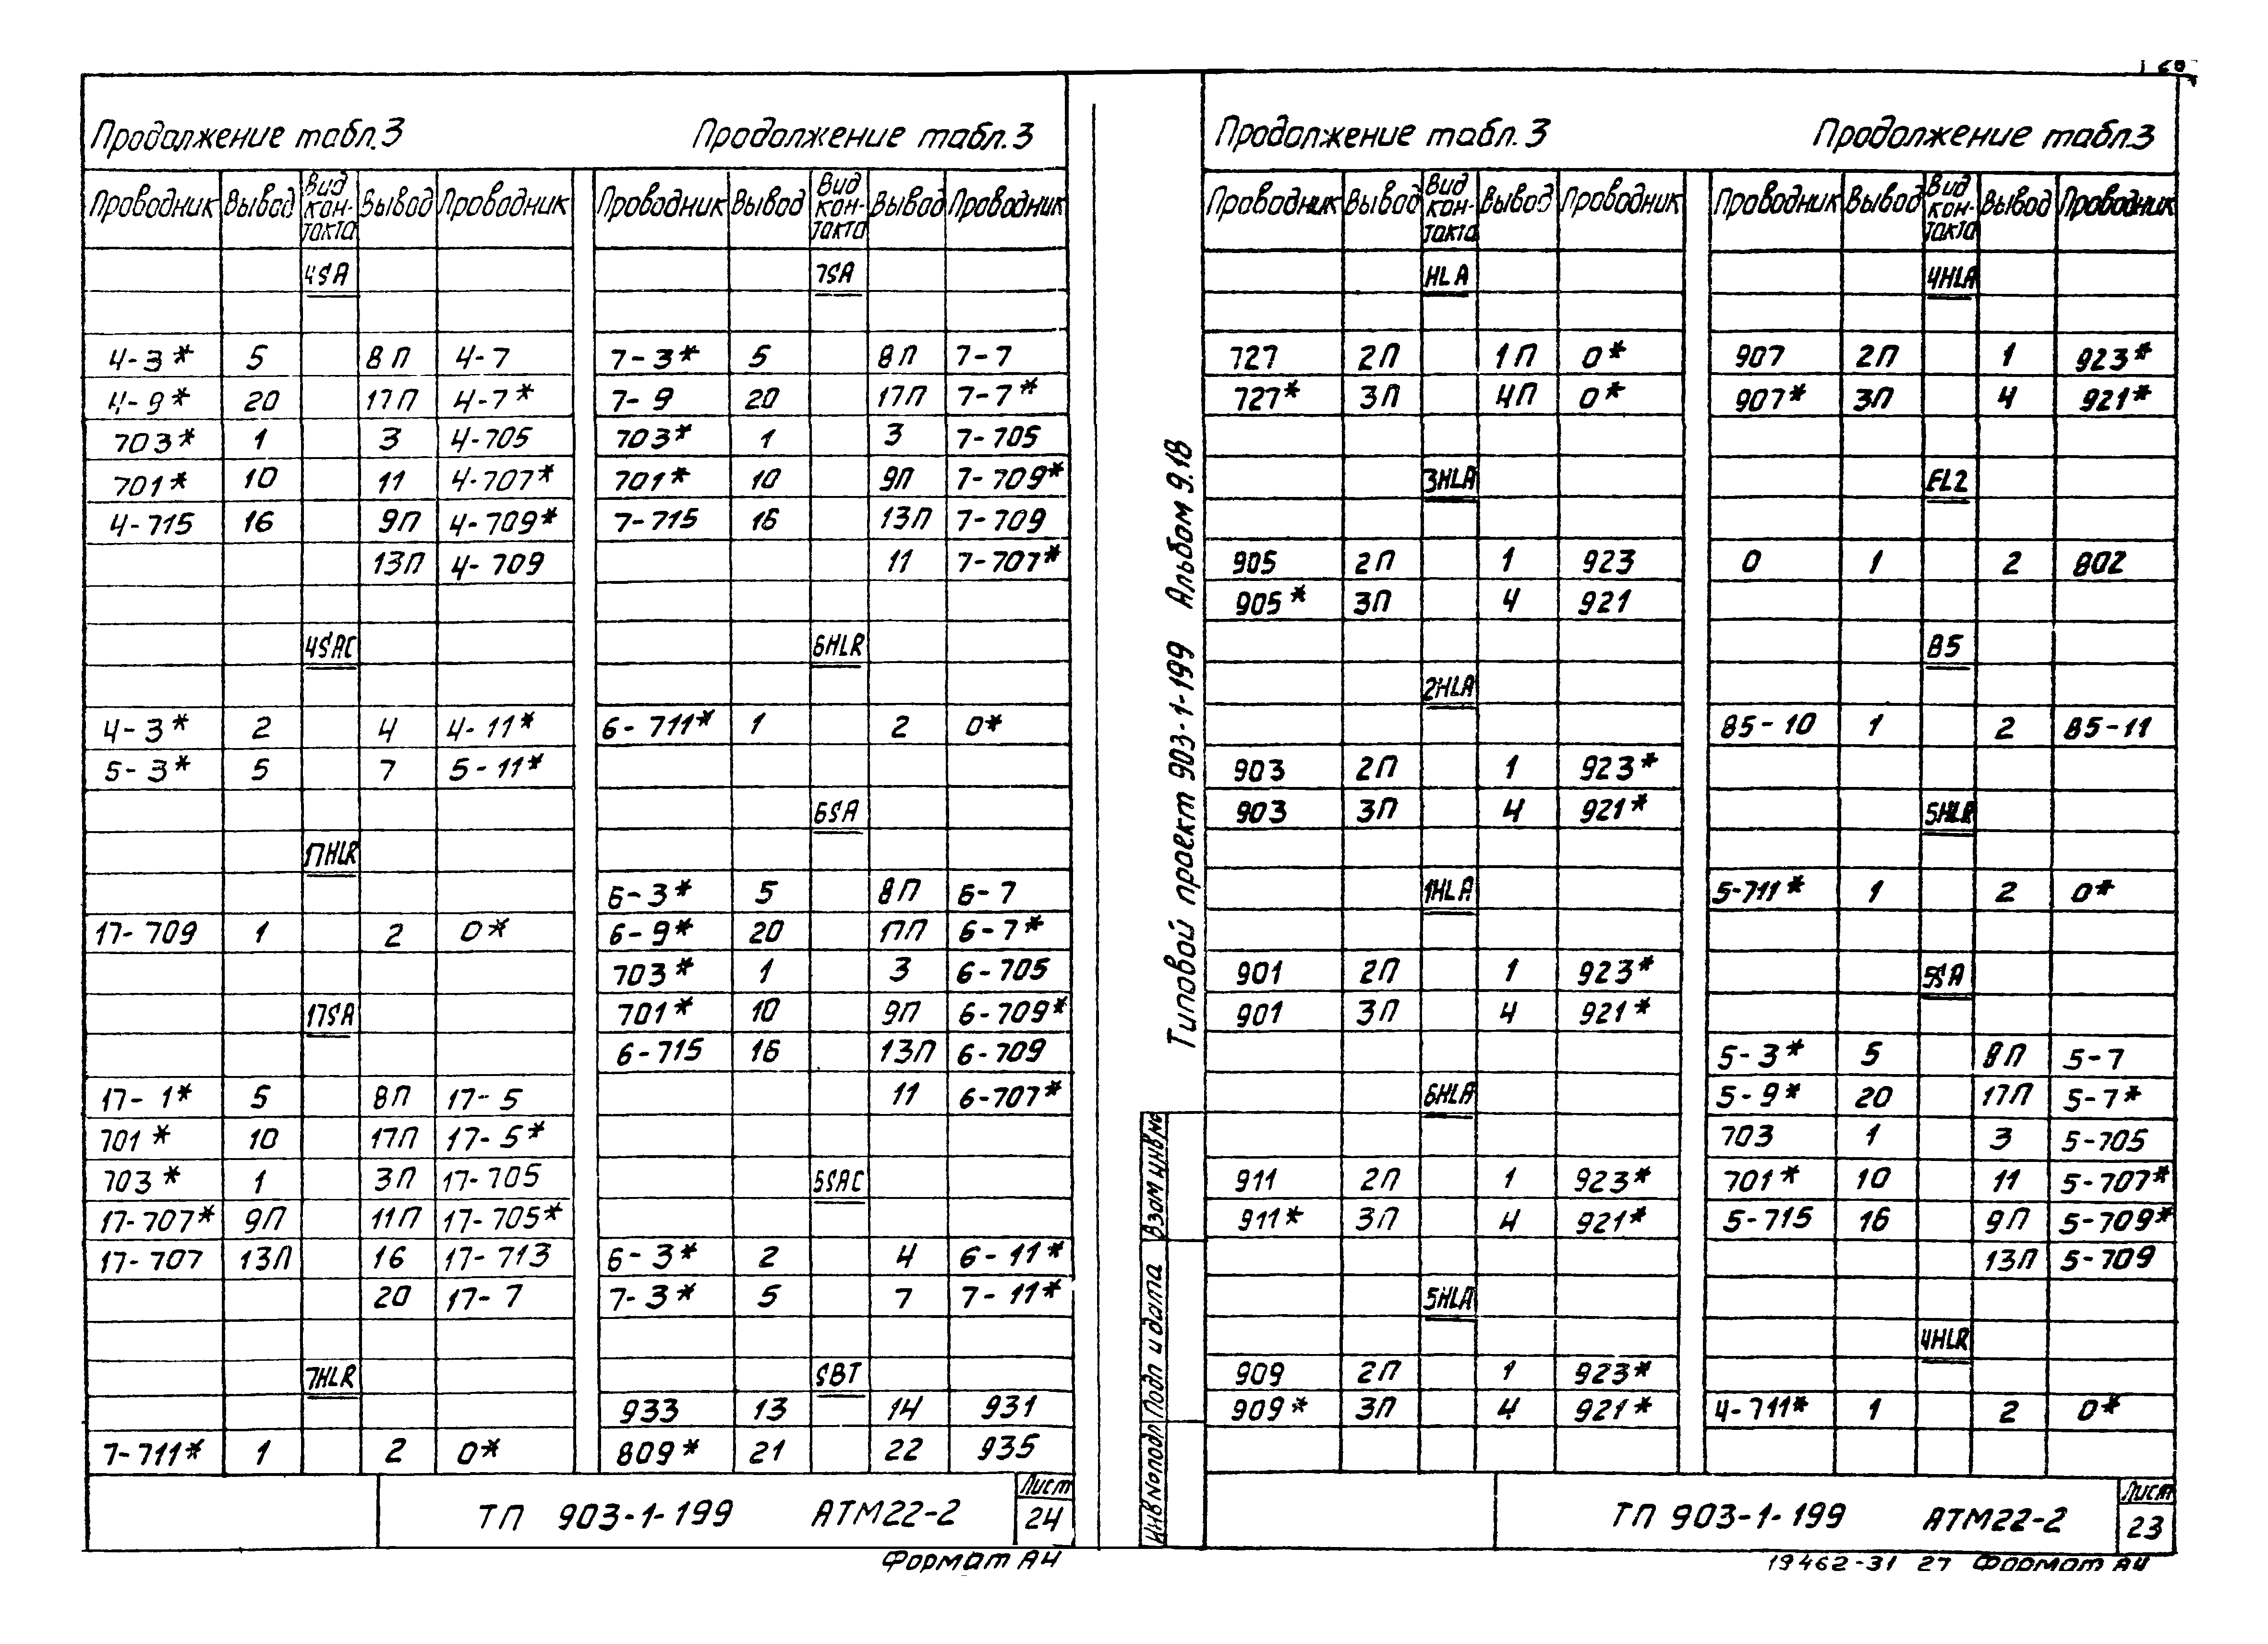 Продолжение табл.3 Продолжение табл.3
Проводник Вывод Вид кон-такта Вывод Проводник
4SA
4-3* 5 8П 4-7
4-9* 20 17П 4-7*
703* 1 3 4-705
701* 10 11 4-707*
4-715 16 9П 4-709*
13П 4-709
4SAC
4-3* 2 4 4-11*
5-3* 5 7 5-11*
17HLR
17-709 1 2 0*
17SA
17-1* 5 8П 17-5
701* 10 17П 17-5*
703* 1 3П 17-705
17-707* 9П 11П 17-705*
17-707 13П 16 17-713
20 17-7
7HLR
7-711* 1 2 0*
Проводник Вывод Вид кон-такта Вывод Проводник
7SA
7-3* 5 8П 7-7
7-9 20 17П 7-7*
703* 1 3 7-705
701* 10 9П 7-709*
7-715 16 13П 7-709
11 7-707*
6HLR
6-711* 1 2 0*
6SA
6-3* 5 8П 6-7
6-9* 20 17П 6-7*
703* 1 3 6-705
701* 10 9П 6-709*
6-715 16 13П 6-709
11 6-707*
5SAC
6-3* 2 4 6-11*
7-3* 5 7 7-11*
SBT
933 13 14 931
809* 21 22 935
ТП 903-1-199 АТМ22-2
Лист
24
Формат А4
Типовой проект 903-1-199 Альбом 9.18
Инв№подл Подп и дата Взам инв№
Продолжение табл.3 Продолжение табл.3
Проводник Вывод Вид кон-такта Вывод Проводник
HLA
727 2П 1П 0*
727* 3П 4П 0*
3HLA
905 2П 1 923
905* 3П 4 921
2HLA
903 2П 1 923*
903 3П 4 921*
1HLA
901 2П 1 923*
901 3П 4 921*
6HLA
911 2П 1 923*
911* 3П 4 921*
5HLA
909 2П 1 923*
909* 3П 4 921*
Проводник Вывод Вид кон-такта Вывод Проводник
4HLA
907 2П 1 923*
907* 3П 4 921*
EL2
0 1 2 802
B5
85-10 1 2 85-11
5HLR
5-711* 1 2 0*
5SA
5-3* 5 8П 5-7
5-9* 20 17П 5-7*
703 1 3 5-705
701* 10 11 5-707*
5-715 16 9П 5-709*
13П 5-709
4HLR
4-711* 1 2 0*
ТП 903-1-199 АТМ22-2
Лист
23
19462-31 27 Формат А4